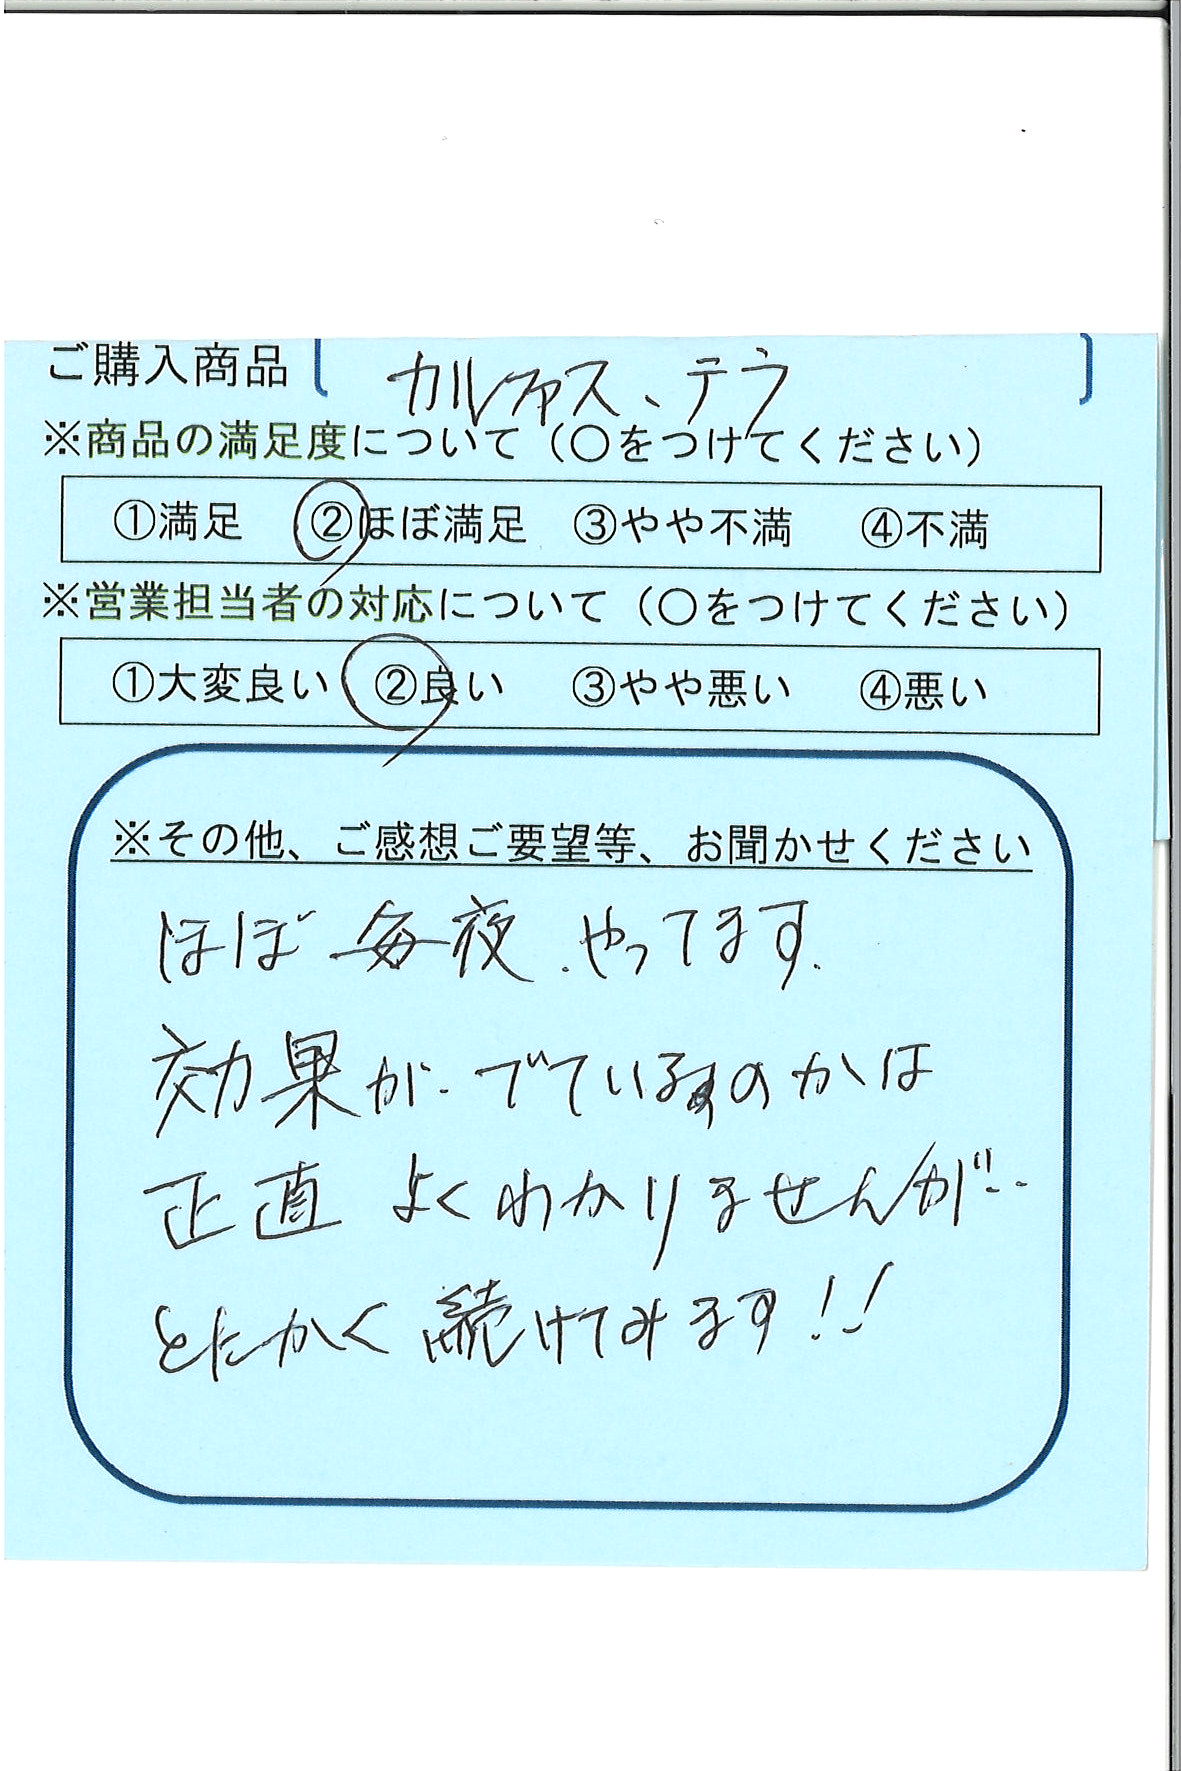 ご購入商品 [ カルファス、テラ ]
※商品の満足度について（〇をつけてください）
①満足 ②ほぼ満足 ③やや不満 ④不満
※営業担当者の対応について（〇をつけてください）
①大変良い ②良い ③やや悪い ④悪い
※その他、ご感想ご要望等、お聞かせください
ほぼ毎夜.やってます.
効果が.でているのかは
正直 よくわかりませんが..
とにかく続けてみます!!